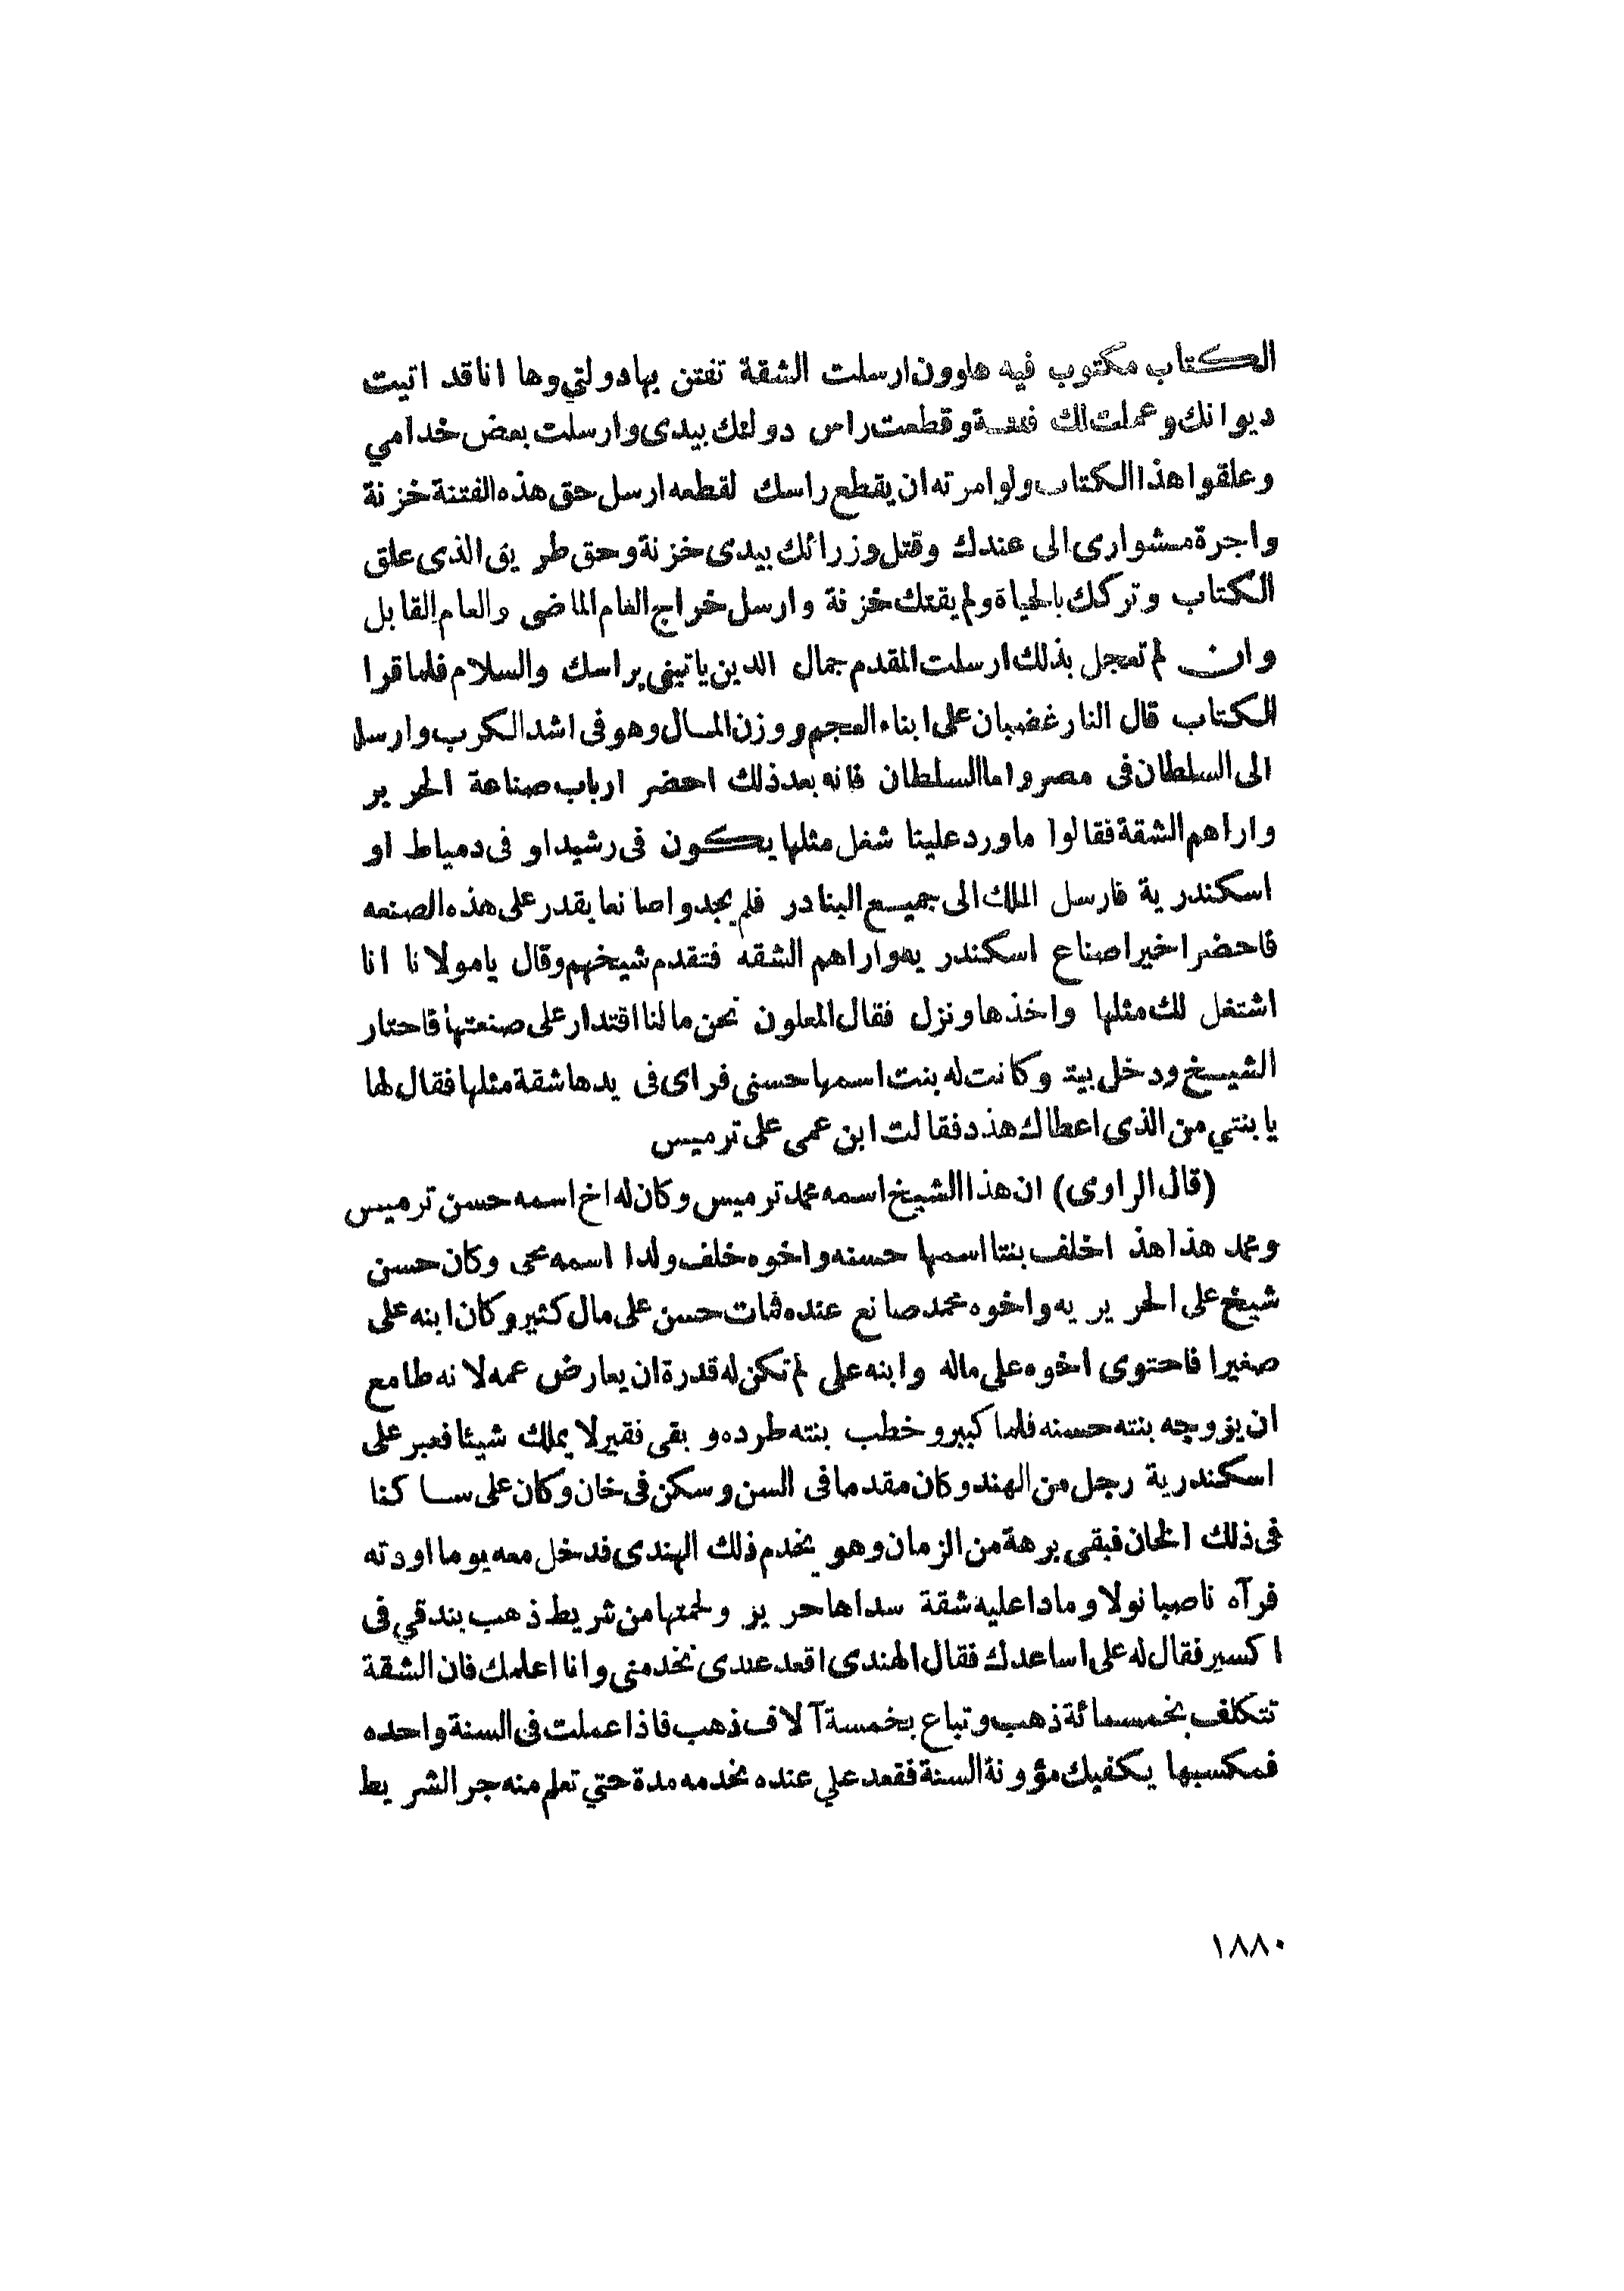 الكتاب مكتوب فيه هاوون ارسلت الشقة تفتن بها دولتي وها انا قد اتيت
ديوانك وعملت لك فتنة وقطعت راس دولتك بيدى وارسلت بعض خدامي
وعلقوا هذا الكتاب ولو امرته ان يقطع راسك لقطعه ارسل حق هذه الفتنة خزنة
واجرة مشوارى الى عندك وقتل وزرائك بيدى خزنة وحق طريق الذى علق
الكتاب وتركك بالحياة ولم يقتك خزنة وارسل خراج العام الماضى والعام القابل
وان لم تعجل بذلك ارسلت المقدم جمال الدين ياتينى براسك والسلام فلما قرا
الكتاب قال النار غضبان على ابناء العجم ووزن المال وهو فى اشد الكرب وارسل
الى السلطان فى مصر واما السلطان فانه بعد ذلك احضر ارباب صناعة الحرير
واراهم الشقة فقالوا ما ورد علينا شغل مثلها يكون فى رشيد او فى دمياط او
اسكندرية فارسل الملك الى جميع البنادر فلم يجدوا صانعا يقدر على هذه الصنعه
فاحضر اخيرا صناع اسكندريه واراهم الشقه فتقدم شيخهم وقال يا مولانا انا
اشتغل لك مثلها واخذها ونزل فقال المعلون نحن ما لنا اقتدار على صنعتها فاحتار
الشيخ ودخل بيته وكانت له بنت اسمها حسنى فراى فى يدها شقة مثلها فقال لها
يا بنتي من الذى اعطاك هذه فقالت ابن عمى على ترميس
(قال الراوى) ان هذا الشيخ اسمه محمد ترميس وكان له اخ اسمه حسن ترميس
ومحمد هذا هذ اخلف بنتا اسمها حسنه واخوه خلف ولدا اسمه على وكان حسن
شيخ على الحريريه واخوه محمد صانع عنده فمات حسن على مال كثير وكان ابنه على
صغيرا فاحتوى اخوه على ماله وابنه على لم تكن له قدرة ان يعارض عمه لانه طامع
ان يزوجه بنته حسنه فلما كبر وخطب بنته طرده وبقى فقير لا يملك شيئا فعبر على
اسكندرية رجل من الهند وكان مقدما فى السن وسكن فى خان وكان على ساكنا
فى ذلك الخان فبقى برهة من الزمان وهو يخدم ذلك الهندى فدخل معه يوما اودته
فرآه ناصبا نولا ومادا عليه شقة سداها حرير ولحمتها من شريط ذهب بندقي فى
اكسير فقال له على اساعدك فقال الهندى اقعد عندى تخدمنى وانا اعلمك فان الشقة
تتكلف بخمسمائة ذهب وتباع بخمسة آلاف ذهب فاذا عملت فى السنة واحده
فمكسبها يكفيك مؤونة السنة فقعد علي عنده يخدمه مدة حتي تعلم منه جر الشريط
١٨٨٠